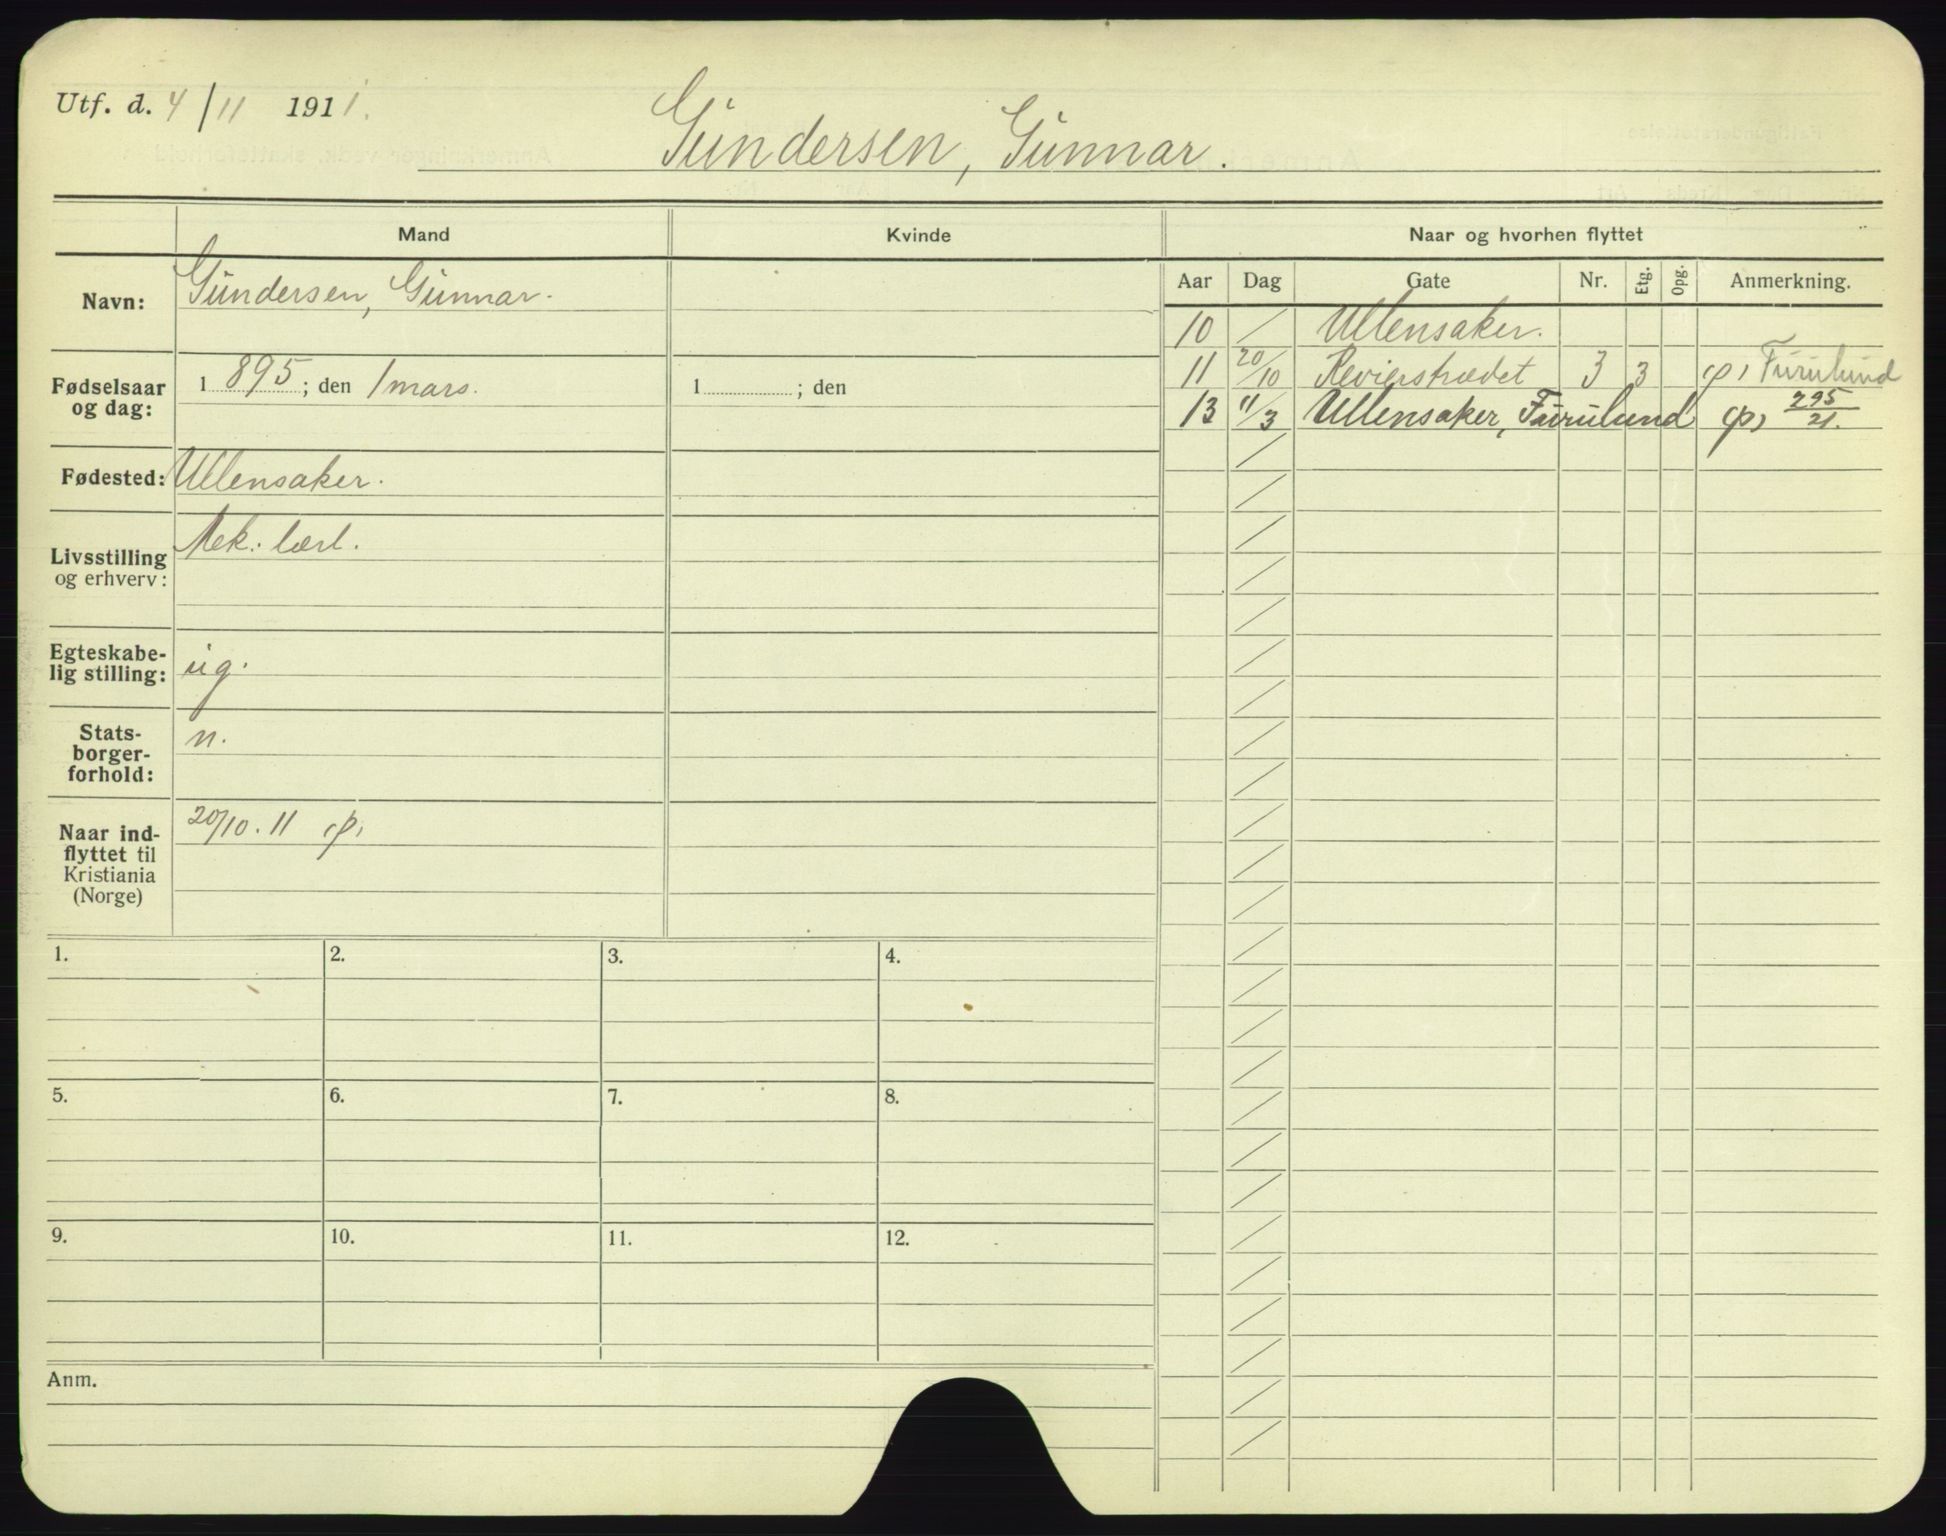 Utf. d. 4/11 1911.
Gundersen, Gunnar.
Mand
Kvinde
Naar og hvorhen flyttet
Navn: Gundersen, Gunnar.
Fødselsaar og dag: 1895; den 1 mars.
1 ; den
Fødested: Ullensaker.
Livsstilling og erhverv: Mek. lærl.
Egteskabe-
lig stilling: ug.
Stats-
borger-
forhold: n.
Naar ind-
flyttet til
Kristiania
(Norge) 20/10. 11 p,
Aar Dag Gate Nr. Etg. Opg. Anmerkning.
10 / Ullensaker.
11 20/10 Revierstrædet 3 3 p, Furulund
13 11/3 Ullensaker, Furulund p, 295/21.
1. 2. 3. 4.
5. 6. 7. 8.
9. 10. 11. 12.
Anm.